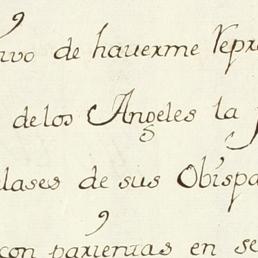 ivo de hauerme repre
de los Angeles la
clases de sus Obispa
con parientas en se